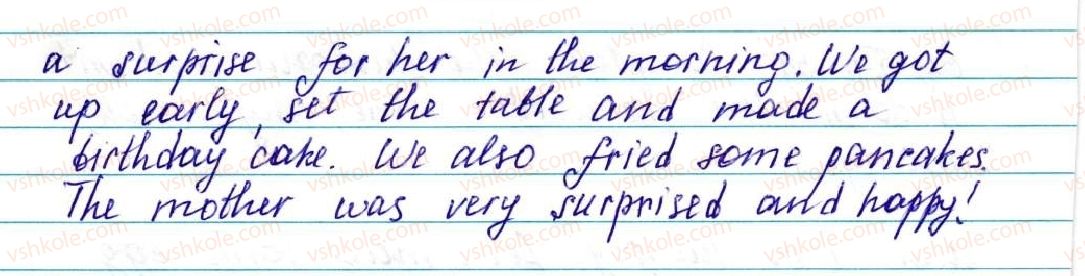 a surprise for her in the morning. We got
up early, set the table and made a
birthday cake. We also fried some pancakes.
The mother was very surprised and happy!